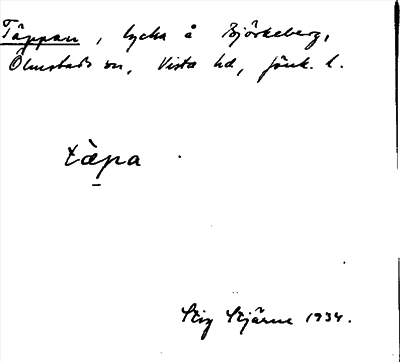 Täppan, lycka å Björkeberg,
Ölmstads sn, Vista hd, Jönk. l.
tàpa
Stig Stjärne 1934.